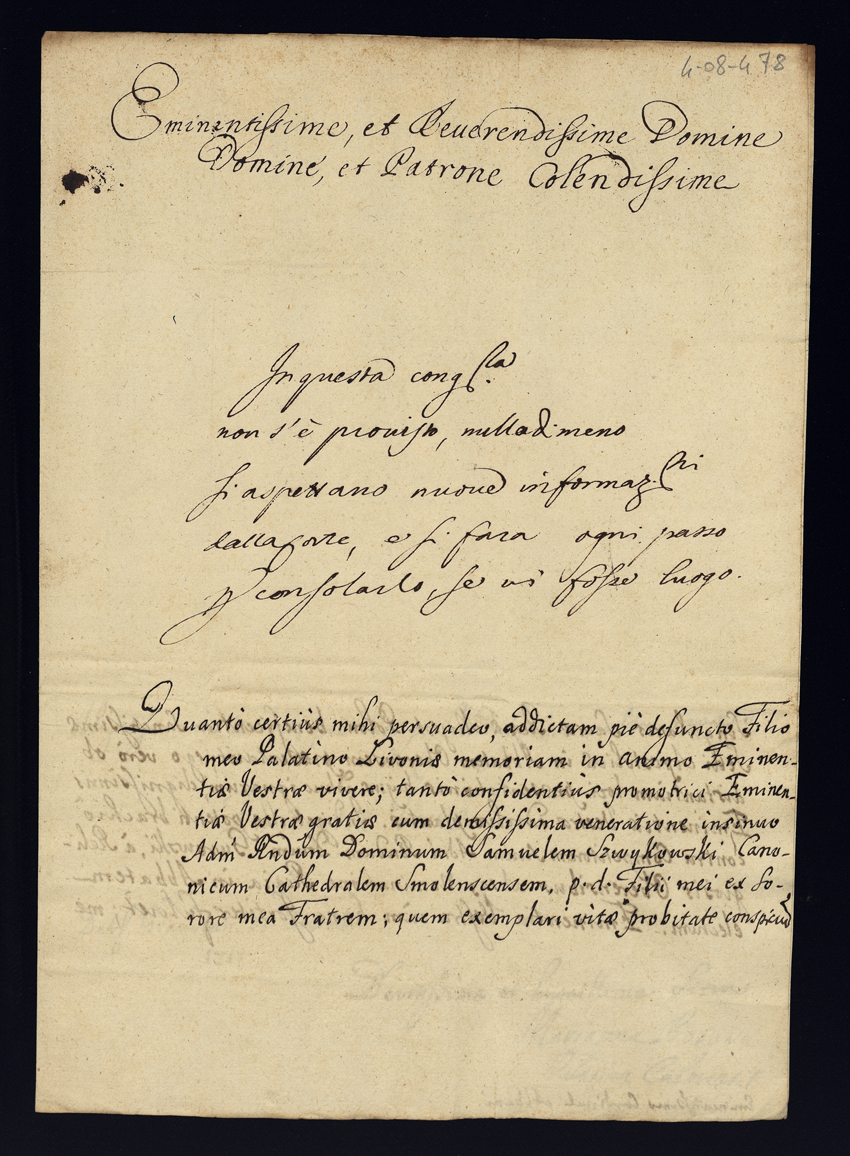 4-08-478
Eminentissime, et Reuerendissime Domine
Domine, et Patrone Colendissime
In questa cong.la
non s'è prouisto, nulladimeno
si aspettano nuoue informaz.ni
dalla Corte, e si fara ogni passo
p consolarlo, se ui fosse luogo.
Quantò certiùs mihi persuadeo, addictam piè defuncto Filio
meo Palatino Livoniæ memoriam in animo Eminen-
tiæ Vestræ vivere; tantò confidentiùs promotrici Eminen-
tiæ Vestræ gratiæ cum demississima veneratione insinuo
Adm Rndum Dominum Samuelem Szwykowski Cano-
nicum Cathedralem Smolenscensem, p. d. Filii mei ex So-
rore mea Fratrem; quem exemplari vitæ probitate conspicuũ